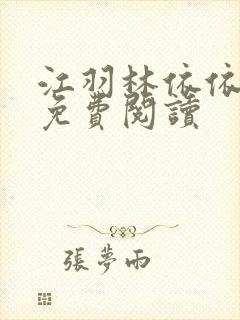 江羽林依依
免費閱讀
張夢雨